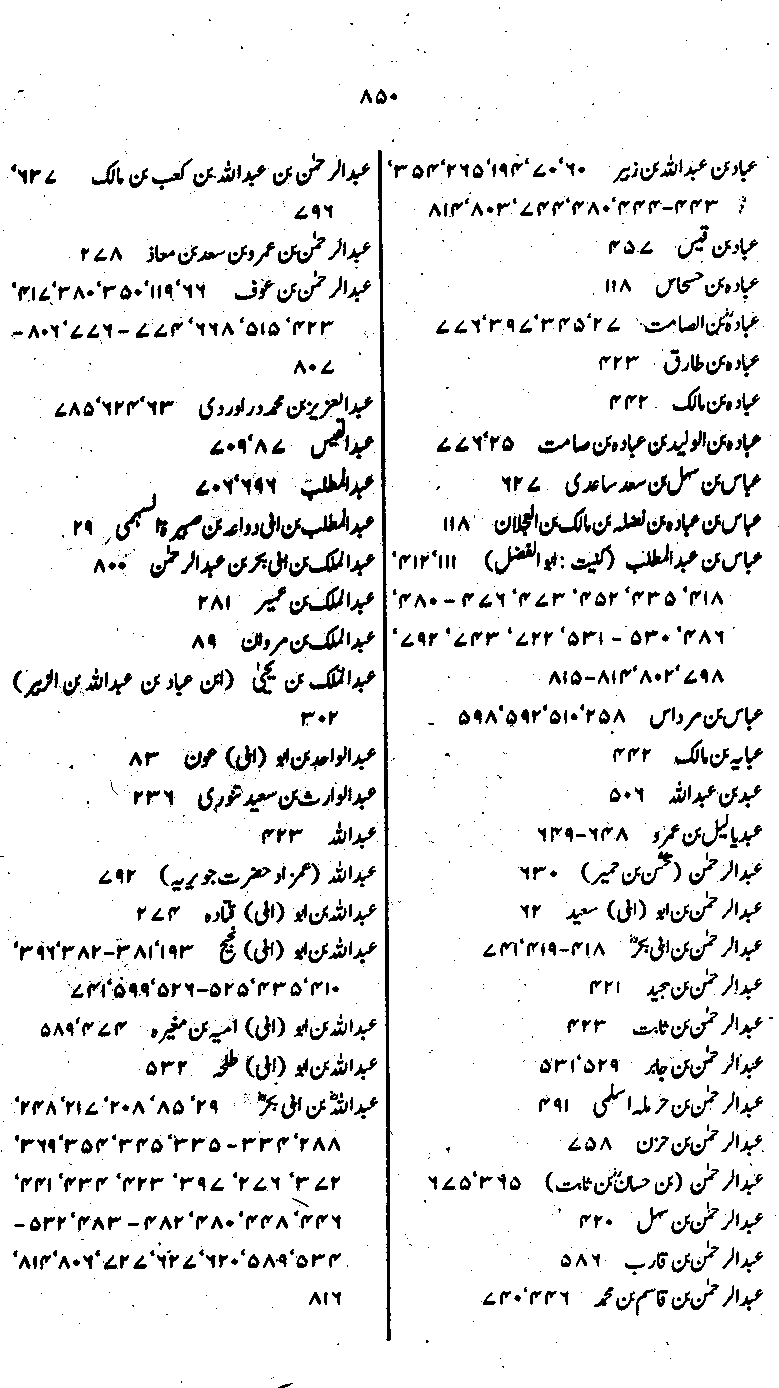 ۸۵۰
عباد بن عبداللہ بن زبیر ۶۰‘۷۰‘۱۹۴‘۲۶۵‘۳۵۴‘
۴۴۳-۴۴۴‘۴۸۰‘۷۴۴‘۸۰۳‘۸۱۴
عباد بن قیس ۴۵۷
عبادہ بن حسحاس ۱۱۸
عبادہؓ بن الصامت ۲۷‘۳۴۵‘۳۹۷‘۷۷۶
عبادہ بن طارق ۴۲۳
عبادہ بن مالک ۴۴۲
عبادہ بن الولید بن عبادہ بن صامت ۲۵‘۷۷۶
عباس بن سہل بن سعد ساعدی ۶۲۷
عباس بن عبادہ بن نضلہ بن مالک بن العجلان ۱۱۸
عباس بن عبدالمطلب (کنیت: ابوالفضل) ۱۱۱‘۴۱۲‘
۴۱۸‘۴۳۵‘۴۵۲‘۴۷۳‘۴۷۶-۴۸۰‘
۴۸۶‘۵۳۰-۵۳۱‘۷۲۲‘۷۴۳‘۷۹۲‘
۷۹۸‘۸۰۲‘۸۱۴-۸۱۵
عباس بن مرداس ۲۵۸‘۵۱۰‘۵۹۲‘۵۹۸
عبایہ بن مالک ۴۴۲
عبد بن عبداللہ ۵۰۶
عبدیالیل بن عمرو ۶۴۸-۶۴۹
عبدالرحمٰن (مخشن بن حمیر) ۶۳۰
عبدالرحمٰن بن ابو (ابی) سعید ۶۲
عبدالرحمٰن بن ابی بکرؓ ۴۱۸-۴۱۹‘۷۴۱
عبدالرحمٰن بن جید ۴۲۱
عبدالرحمٰن بن ثابت ۴۲۳
عبدالرحمٰن بن جابر ۵۲۹‘۵۳۱
عبدالرحمٰن بن حرملہ اسلمی ۴۹۱
عبدالرحمٰن بن حزن ۷۵۸
عبدالرحمٰن (بن حسانؓ بن ثابت) ۳۶۵‘۶۷۵
عبدالرحمٰن بن سہل ۴۲۰
عبدالرحمٰن بن قارب ۵۸۶
عبدالرحمٰن بن قاسم بن محمد ۴۴۶‘۷۴۰
عبدالرحمٰن بن عبداللہ بن کعب بن مالک ۶۳۷‘
۷۹۶
عبدالرحمٰن بن عمرو بن سعد بن معاذ ۲۷۸
عبدالرحمٰن بن عوف ۶۶‘۱۱۹‘۳۵۰‘۳۸۰‘۴۱۷‘
۴۲۳‘۵۱۵‘۶۶۸‘۷۷۴-۷۷۶‘۸۰۶-
۸۰۷
عبدالعزیز بن محمد دراوردی ۶۳‘۶۲۴‘۷۸۵
عبدالقیس ۸۷‘۷۰۹
عبدالمطلب ۶۹۶‘۷۰۶
عبدالمطلب بن ابی وداعہ بن صبیرۃ السہمی ۲۹
عبدالملک بن ابی بکر بن عبدالرحمٰن ۸۰۰
عبدالملک بن عمیر ۲۸۱
عبدالملک بن مروان ۸۹
عبدالملک بن یحییٰ (ابن عباد بن عبداللہ بن الزبیر)
۳۰۲
عبدالواحد بن ابو (ابی) عون ۸۳
عبدالوارث بن سعید تنوری ۲۳۶
عبداللہ ۴۲۳
عبداللہ (عمزاد حضرت جویریہ) ۷۹۲
عبداللہ بن ابو (ابی) قتادہ ۲۷۴
عبداللہ بن ابو (ابی) نجیح ۱۹۳‘۳۸۱-۳۸۲‘۳۹۶‘
۴۱۰‘۴۳۵‘۵۲۵-۵۲۶‘۵۹۹‘۷۴۱
عبداللہ بن ابو (ابی) امیہ بن مغیرہ ۴۷۴‘۵۸۹
عبداللہ بن ابو (ابی) طلحہ ۵۳۲
عبداللہؓ بن ابی بکرؓ ۲۹‘۸۵‘۲۰۸‘۲۱۷‘۲۴۸‘
۲۸۸‘۳۳۴-۳۳۵‘۳۴۵‘۳۵۴‘۳۶۹‘
۳۷۲‘۲۷۶‘۳۹۷‘۴۲۳‘۴۳۴‘۴۴۱‘
۴۴۶‘۴۴۸‘۴۸۰‘۴۸۲-۴۸۳‘۵۳۲-
۵۳۴‘۵۸۹‘۶۲۰‘۶۲۷‘۷۲۷‘۸۰۶‘۸۱۴‘
۸۱۶